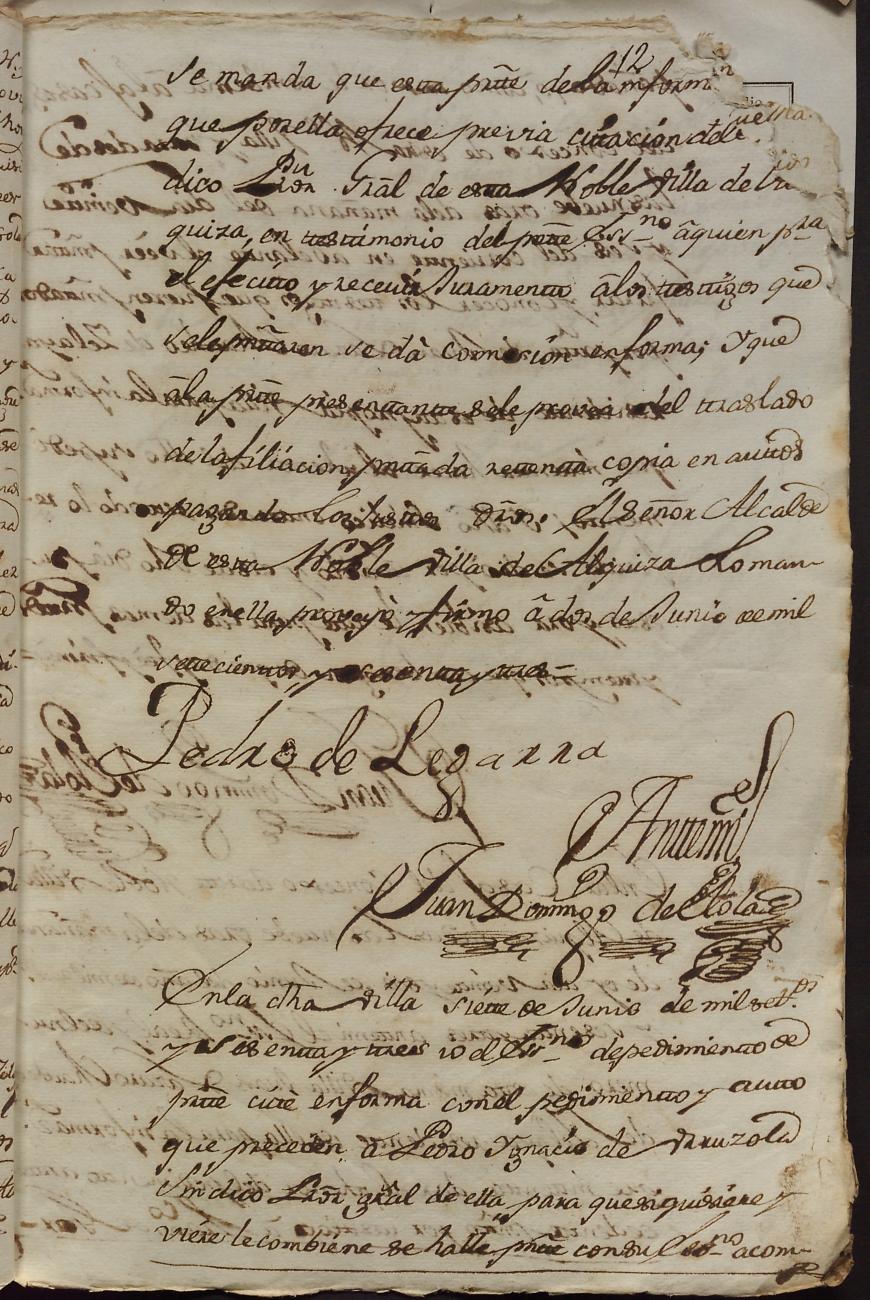 12
se manda que esta prte de la inform.on
que por ella ofrece previa citacion del
dico Pror Gral de esta Noble Villa de
quiza, en testimonio del prtte Essno â quien pra
el efecto y recevir Juramento â los testigos que
se le prtaren se dà comision en forma; Y que
â la prtte presentante se le provea del traslado
de la filiacion prttada retenta copia en auttos
pagando los justos drôs. El Señor Alcalde
de esta Noble Villa de Alquiza Lo man-
do en ella proveyò y firmo â dos de Junio de mil
settecientos y sesenta y tres=
Pedro de Legarra
Anttemi
Juan Domingo de Elola
En la dha Villa siette de Junio de mil sett.os
y sesenta y tres io el Essno de pedimiento de
prtte cite en forma con el pedimiento y autto
que preceden â Pedro Ygnacio de Vruzola
Sindico Pror gral de ella para que si quisiere y
viere le combiene se halle prtte con su Essno acom-